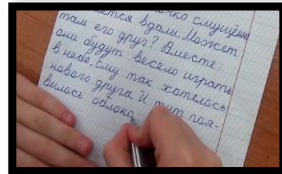 тся вдали. Может
там его друг? Вместе
они будут весело играть
в небе. Ему так хотелось
нового друга. И тут поя-
вилось облако